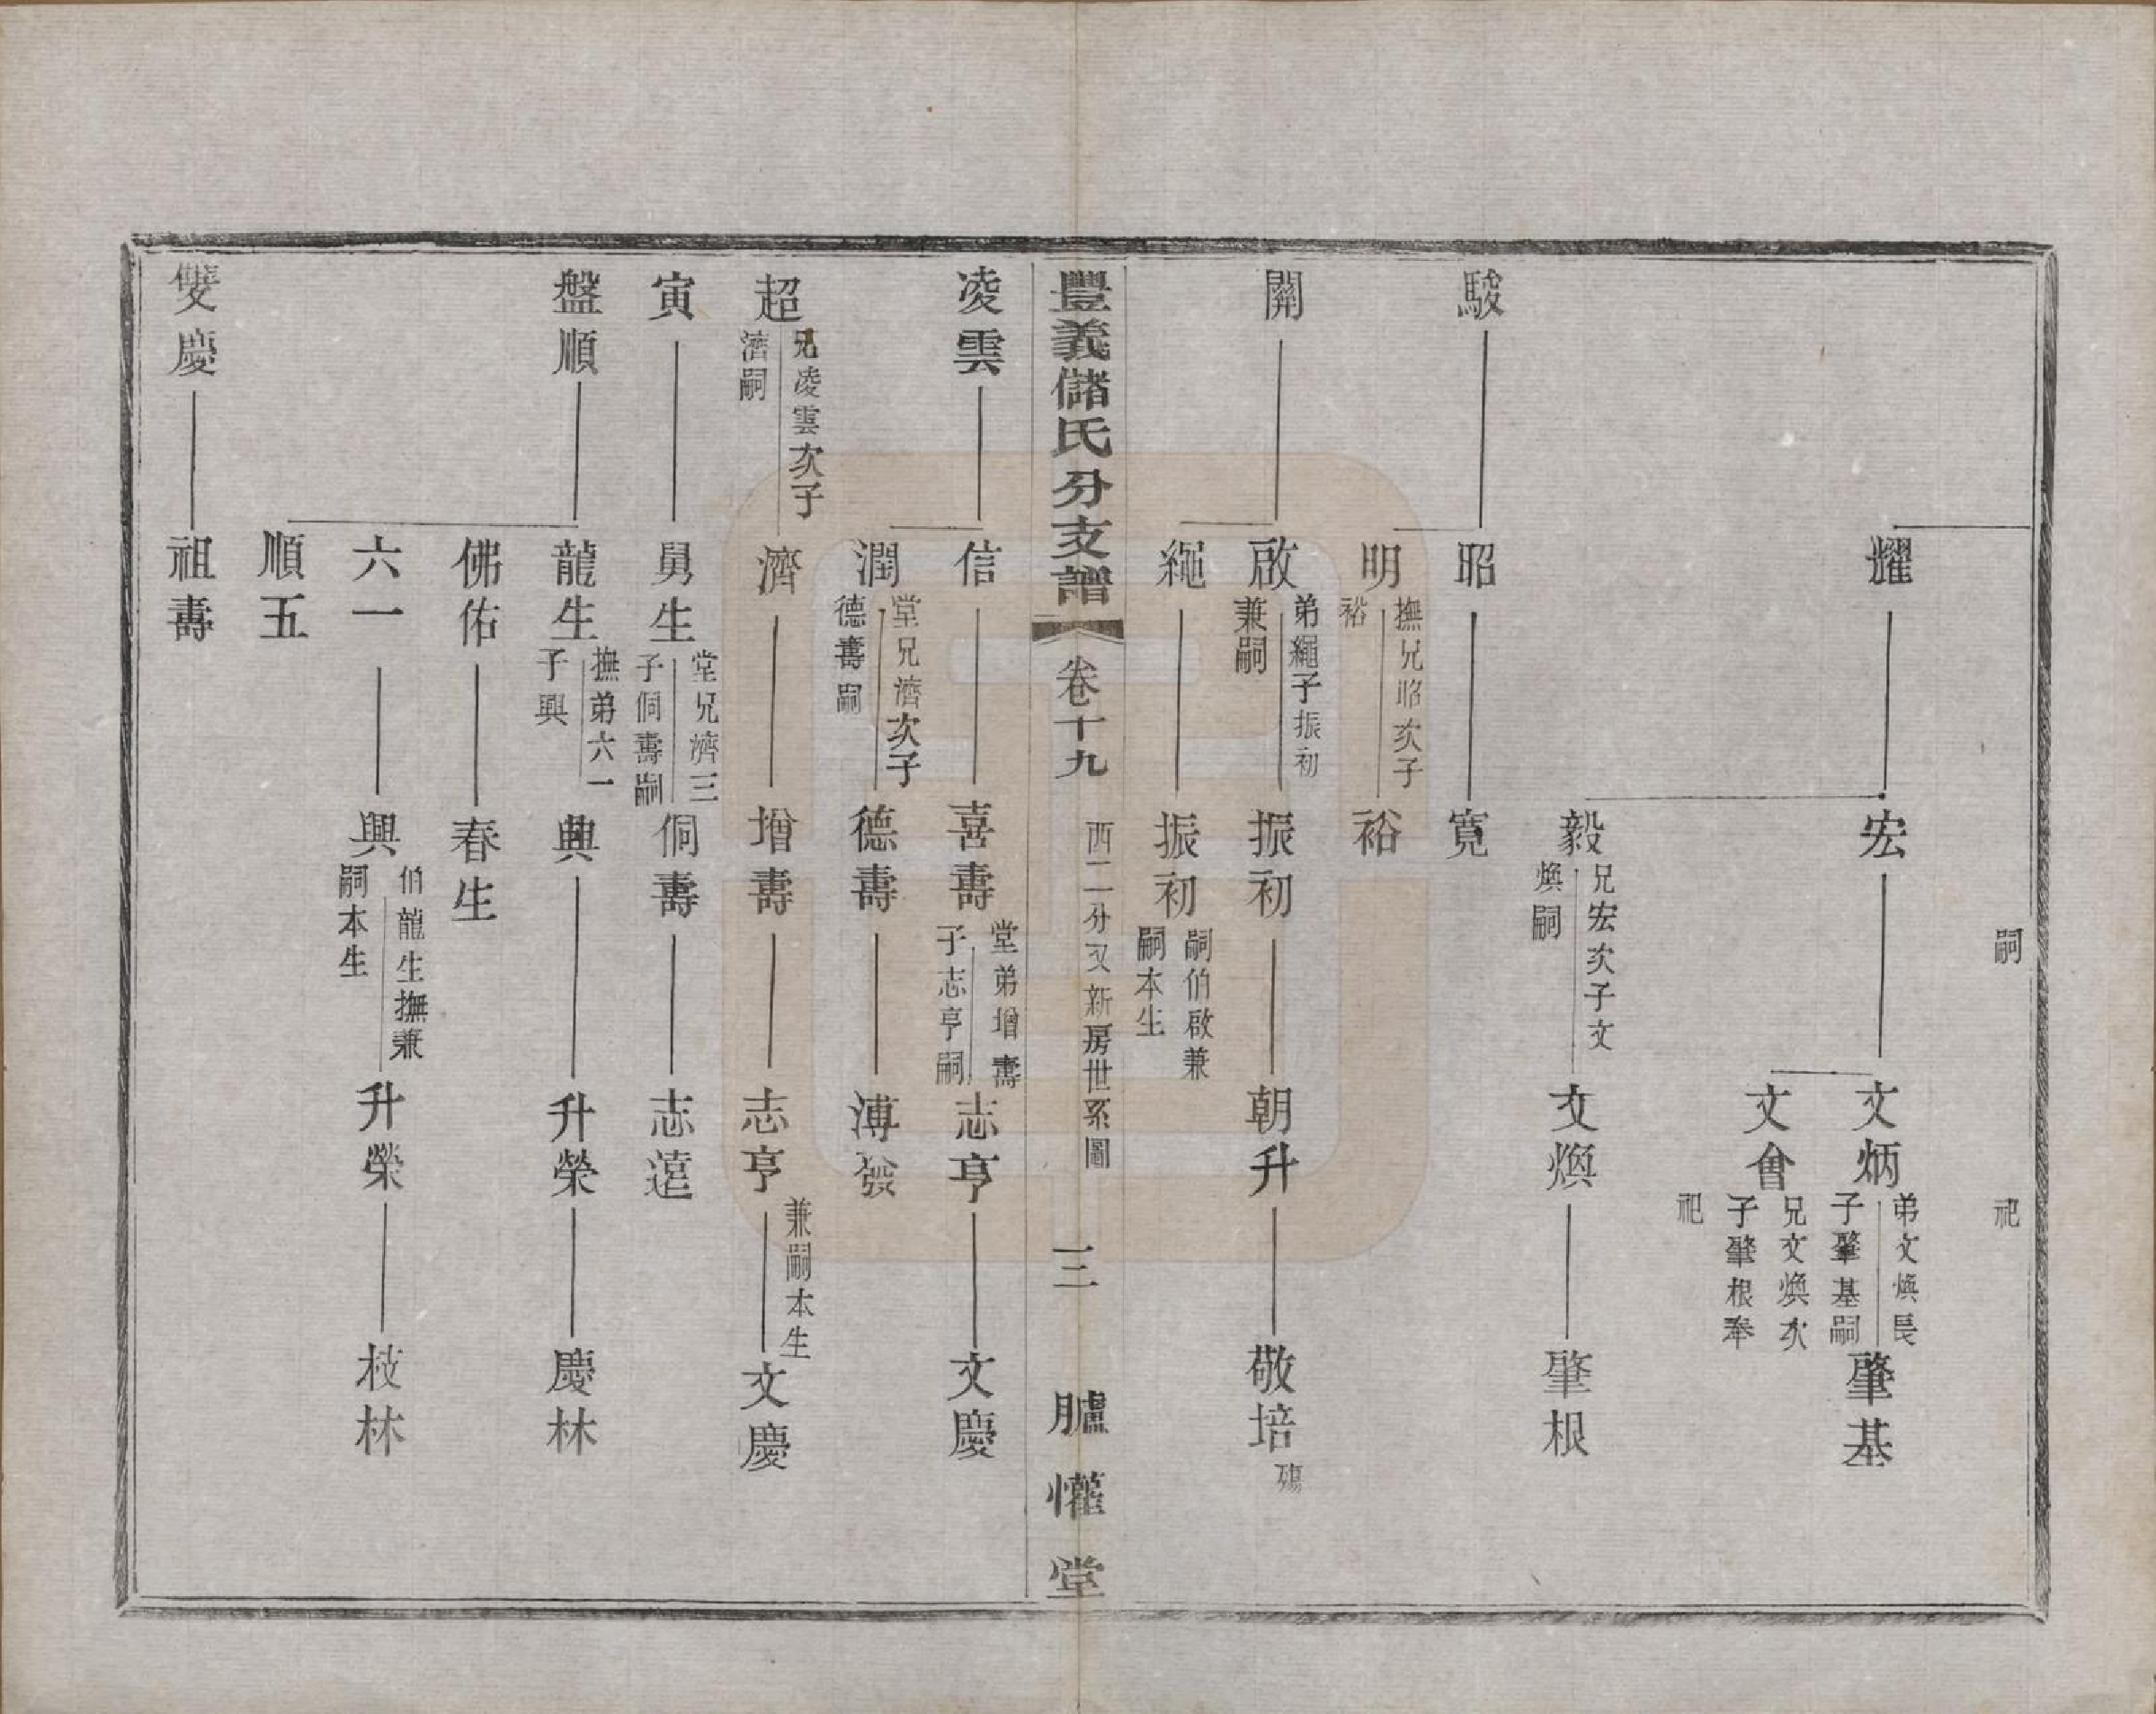 嗣
祀
耀
宏
文炳
弟文煥長
子肇基嗣
肇基
文會
兄文煥次
子肇根奉
祀
毅
兄宏次子文
煥嗣
文煥
肇根
駿
昭
寬
明
撫兄昭次子
裕
裕
開
啟
弟繩子振初
兼嗣
振初
朝升
敬培
殤
繩
振初
嗣伯啟兼
嗣本生
豐義儲氏分支譜
卷十九
西二分又新房世系圖
三
臚懽堂
凌雲
信
喜壽
堂弟增壽
子志亨嗣
志亨
文慶
潤
堂兄濟次子
德壽嗣
德壽
溥發
超
兄凌雲次子
濟嗣
濟
增壽
志亨
兼嗣本生
文慶
寅
舅生
堂兄濟三
子侗壽嗣
侗壽
志遠
盤順
龍生
撫弟六一
子興
興
升榮
慶林
佛佑
春生
六一
興
伯龍生撫兼
嗣本生
升榮
枝林
順五
雙慶
祖壽